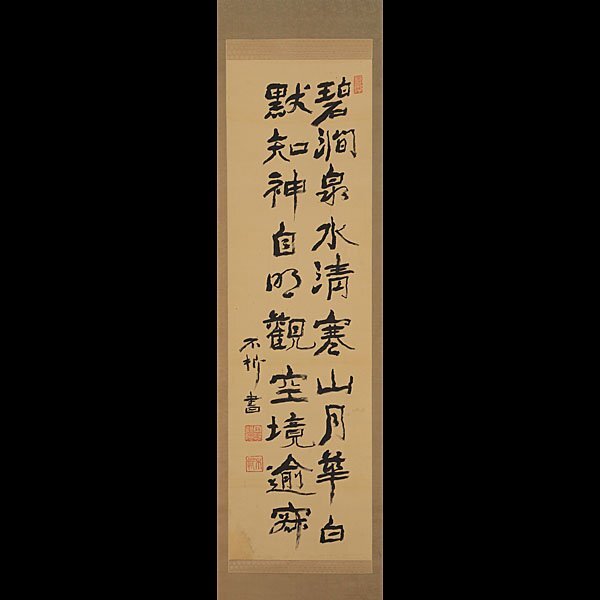 碧澗泉水清寒山月華白
默知神自明觀空境逾寂
不折書